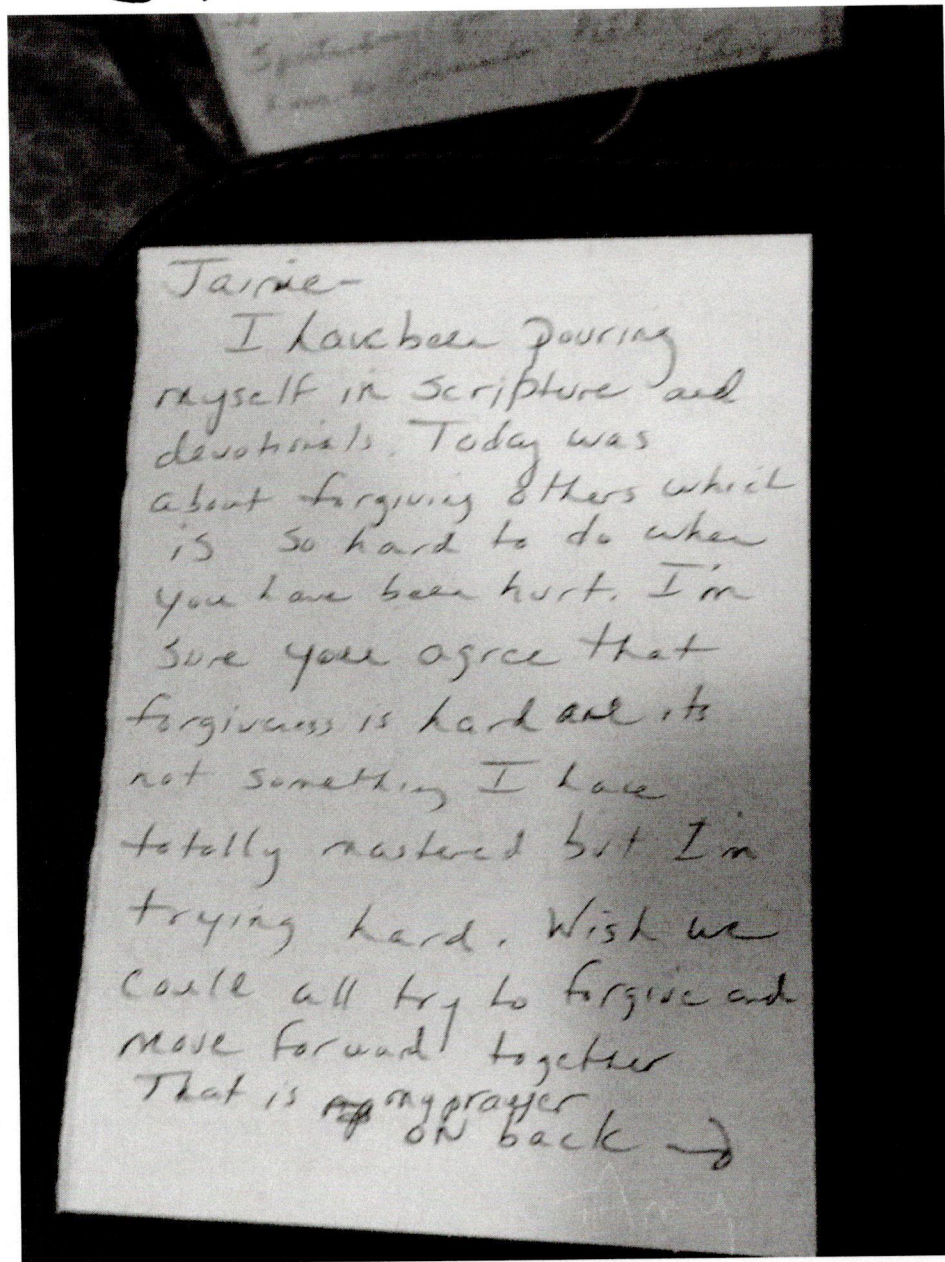 Jamie-
I have been pouring
myself in Scripture and
devotionals. Today was
about forgiving others which
is so hard to do when
you have been hurt. I'm
sure you agree that
forgiveness is hard and its
not something I have
totally mastered but I'm
trying hard. Wish we
could all try to forgive and
move forward together
That is my prayer
ON back →
Amy